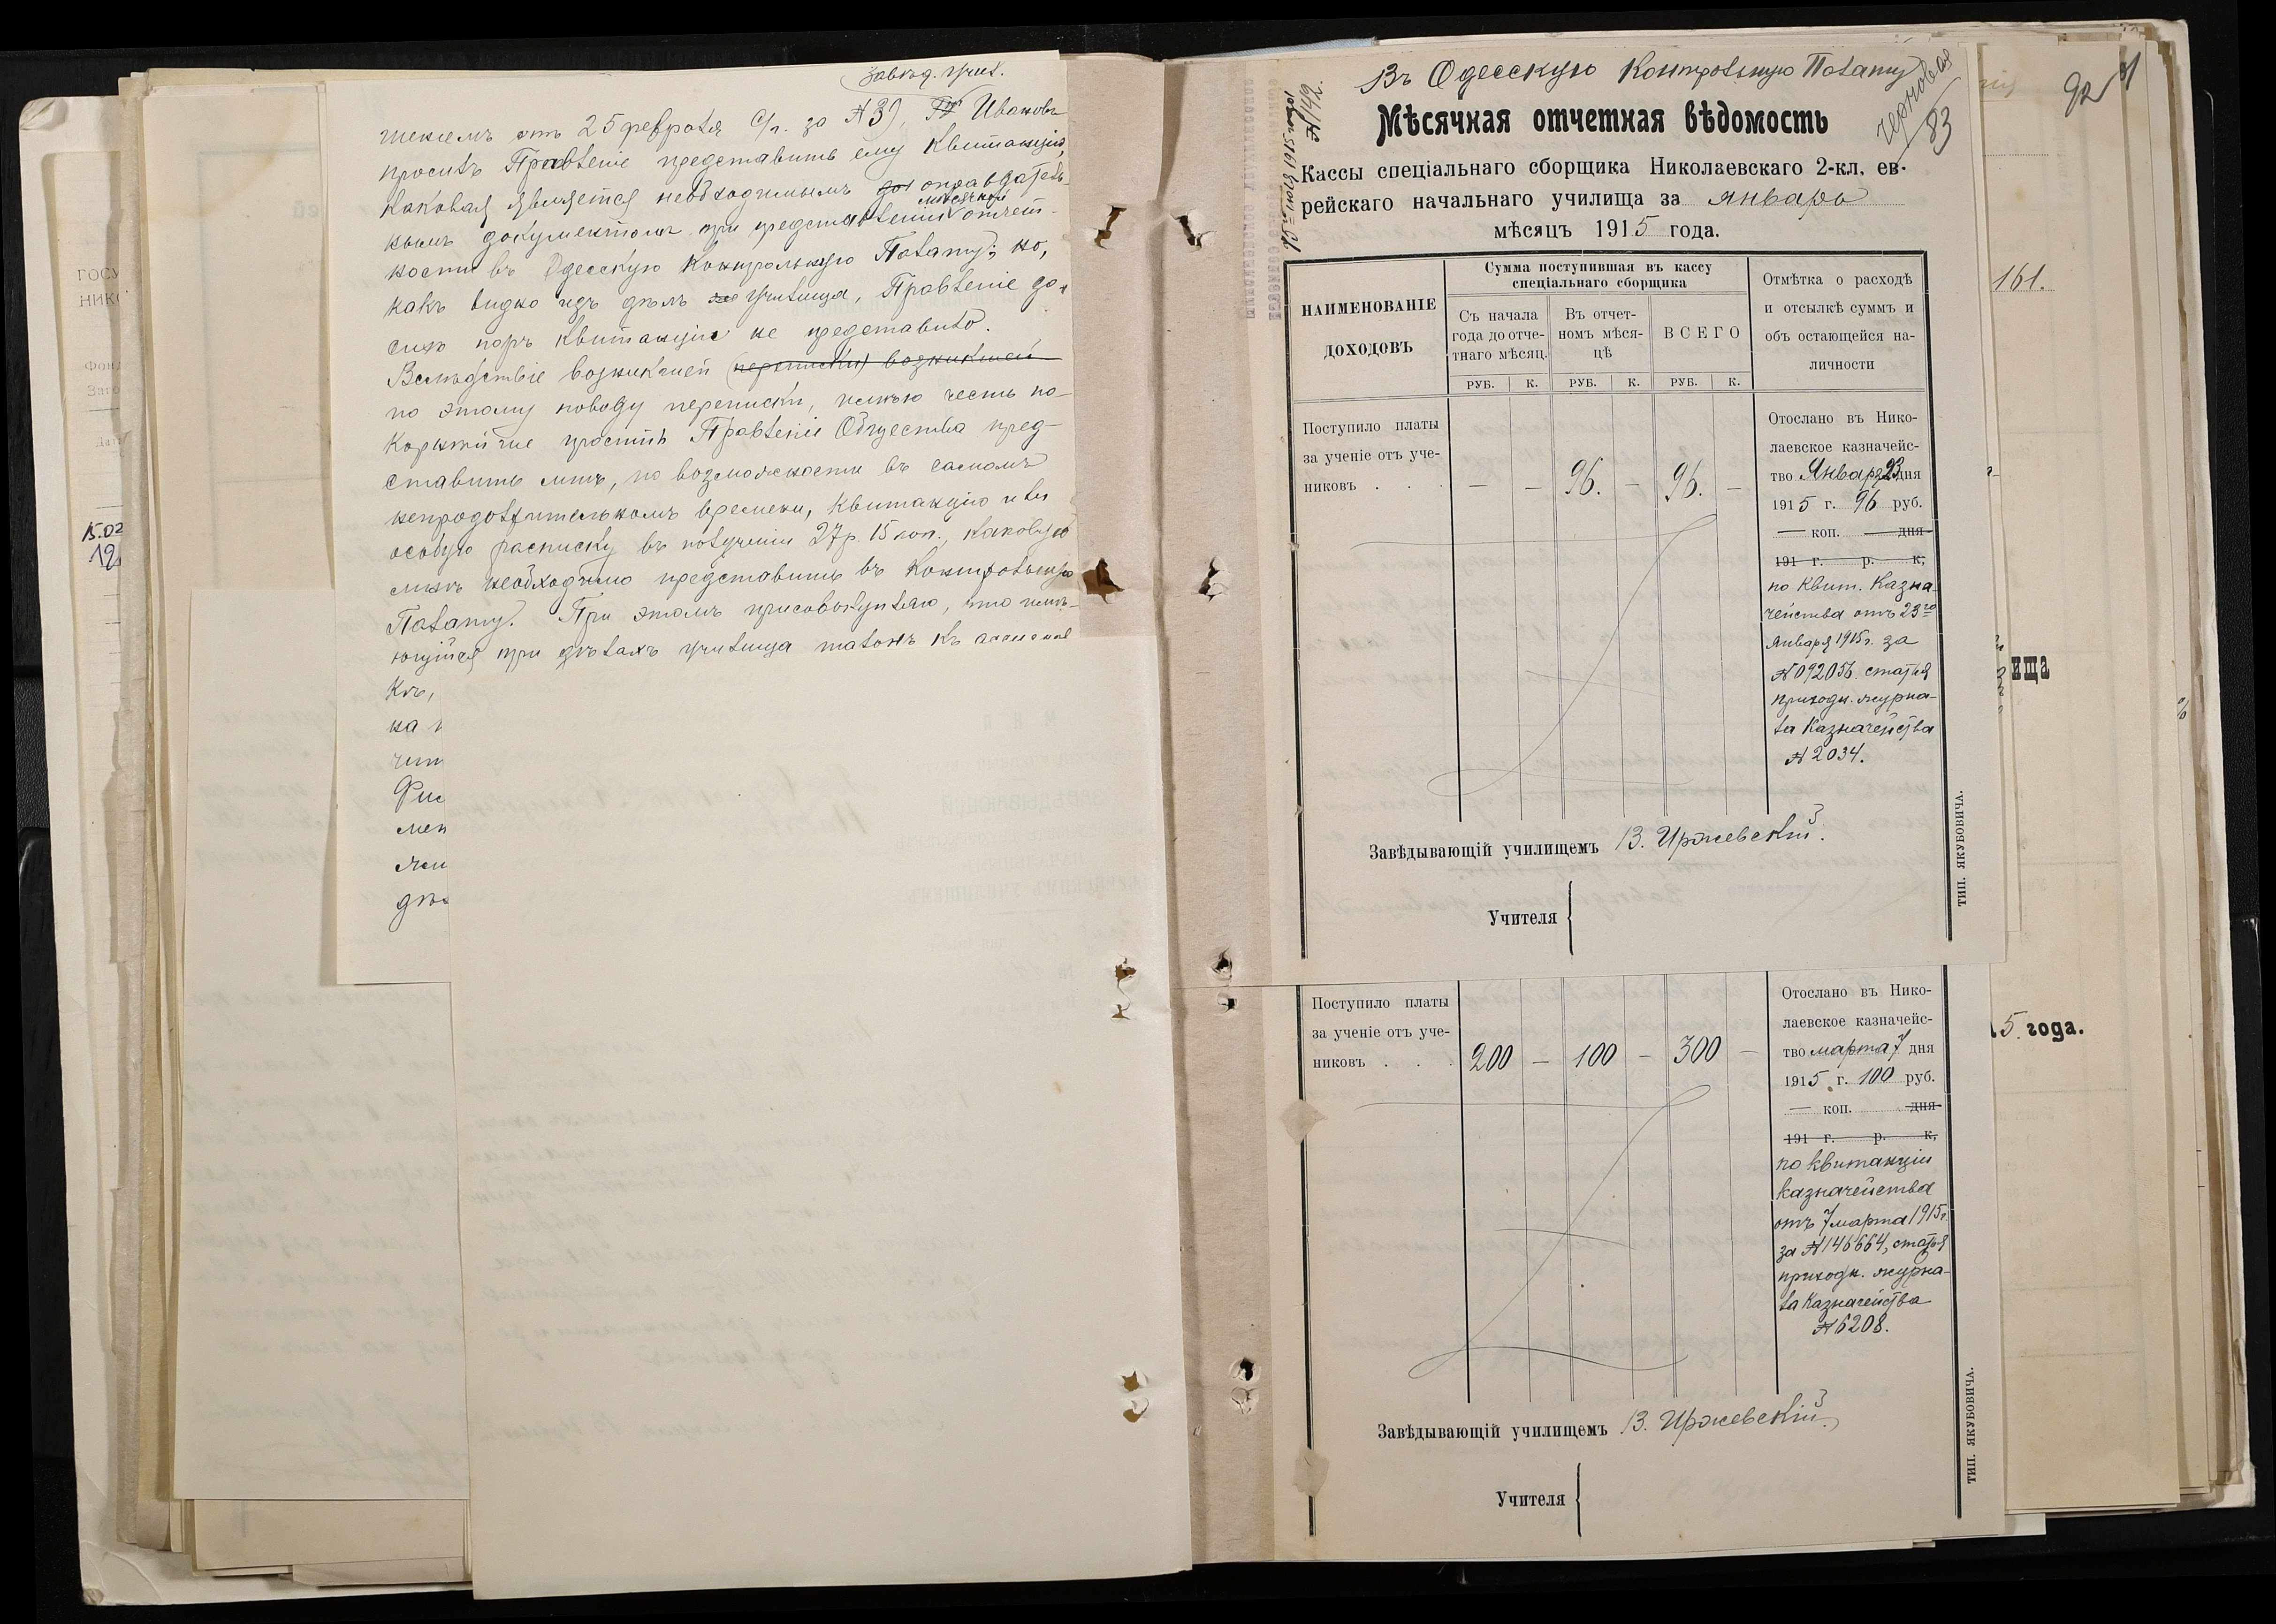 Завѣд. Учил.
шеніемъ отъ 25 февраля с/г. за № 3), Ивановъ
проситъ Правленіе представить ему квитанцію,
каковая является необходимымъ оправдатель-
мѣсячной
нымъ документомъ при представленіи отчет-
ности въ Одесскую Контрольную Палату; но,
какъ видно изъ дѣлъ училища, Правленіе до
сихъ поръ квитанціи не представило.
Вслѣдствіе возникшей (переписки) возникшей
по этому поводу переписки, имѣю честь по-
корнѣйше просить Правленіе Общества пред-
ставить мнѣ, по возможности въ самомъ
непродолжительномъ времени, квитанцію или
особую расписку въ полученіи 27 р. 15 коп., каковую
мнѣ необходимо представить въ Контрольную
Палату. При этомъ присовокупляю, что имѣ-
ющійся при дѣлахъ училища талонъ къ
къ,
на
чит
Фис
мен
жи
дѣ
ГОСУ
НИК
Фонд
15.02
Въ Одесскую Контрольную Палату
Черновая
83
Мѣсячная отчетная вѣдомость
Кассы спеціальнаго сборщика Николаевскаго 2-кл. ев-
рейскаго начальнаго училища за январь
мѣсяцъ 1915 года.
НАИМЕНОВАНІЕ ДОХОДОВЪ
Сумма поступившая въ кассу
спеціальнаго сборщика
Съ начала
года до отче-
тнаго мѣсяц.
Въ отчет-
номъ мѣся-
цѣ
ВСЕГО
РУБ. К. РУБ. К. РУБ. К.
Отмѣтка о расходѣ
и отсылкѣ суммъ и
объ остающейся на-
личности
Поступило платы
за ученіе отъ уче-
никовъ . . .
— — 96. — 96. —
Отослано въ Нико-
лаевское казначейс-
тво Января 23 дня
1915 г. 96 руб.
— коп. дня
191 г. р. к,
по квит. Казна-
чейства отъ 23го
Января 1915 г. за
№ 092056. статья
приходн. журна-
ла Казначейства
№ 2034.
Завѣдывающій училищемъ В. Иржевскій.
Учителя
ТИП. ЯКУБОВИЧА.
Поступило платы
за ученіе отъ уче-
никовъ . . .
200 — 100 — 300 —
Отослано въ Нико-
лаевское казначейс-
тво марта 7 дня
1915 г. 100 руб.
— коп. дня
191 г. р. к,
по квитанціи
казначейства
отъ 7 марта 1915 г.
за № 146664, статья
приходн. журна-
ла Казначейства
№ 6208.
Завѣдывающій училищемъ В. Иржевскій.
Учителя
ТИП. ЯКУБОВИЧА.
92
161.
ища
5 года.